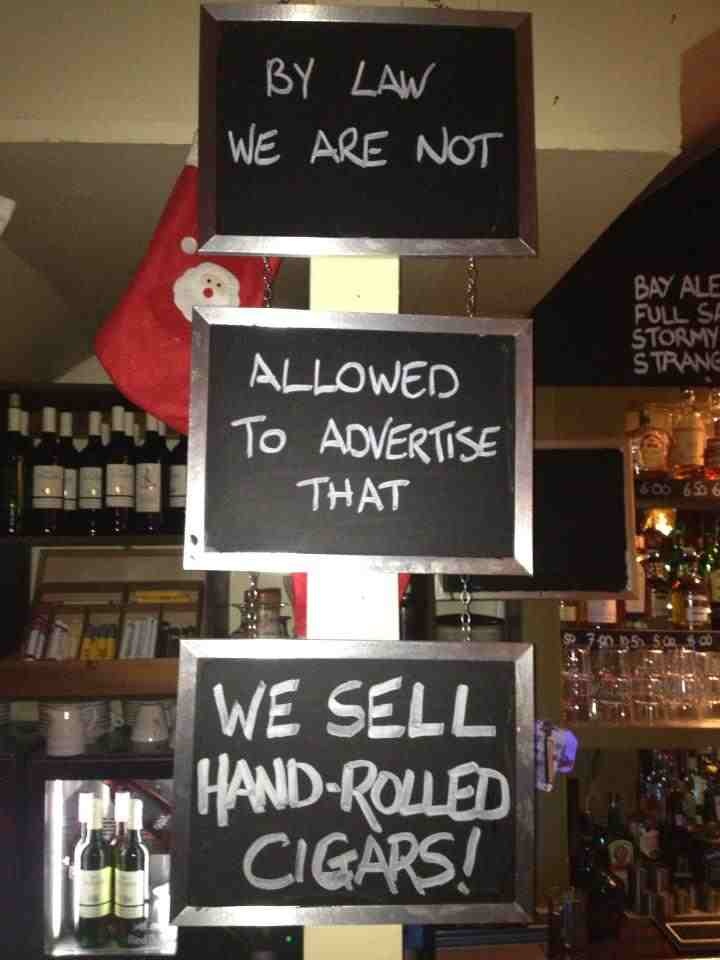 BY LAW
WE ARE NOT
ALLOWED
TO ADVERTISE
THAT
WE SELL
HAND-ROLLED
CIGARS!
BAY ALE
FULL
STORMY
STRANG